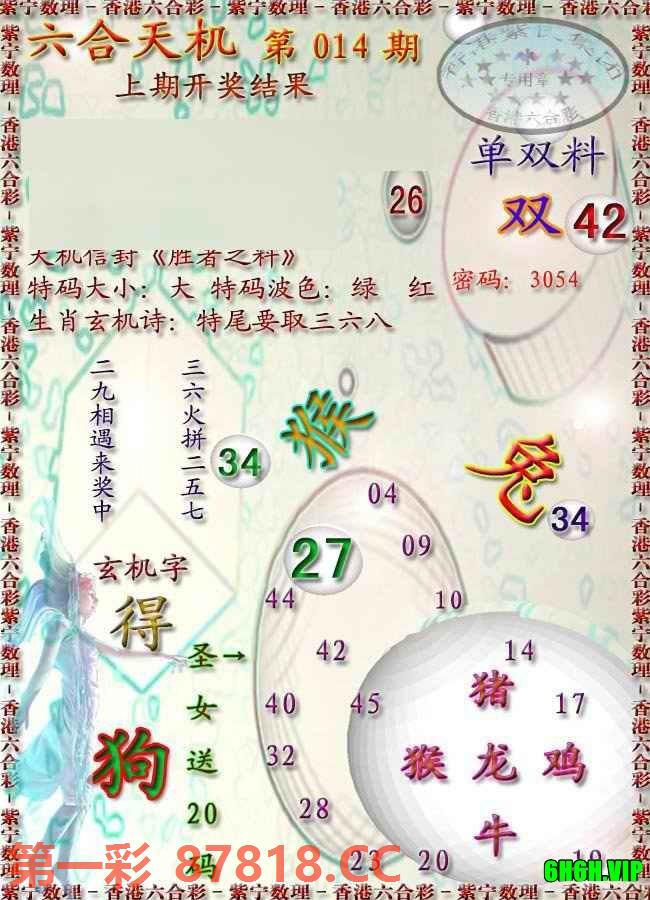 紫宁数理－香港六合彩－紫宁数理－香港六合彩－紫宁数理－香港六合彩
六合天机 第 014 期
上期开奖结果
专用章
香港六合彩
单双料
双 42
26
天机信封《胜者之料》
特码大小：大 特码波色：绿 红
密码：3054
生肖玄机诗：特尾要取三六八
三六火拼二五七
二九相遇来奖中
34
猴
兔
34
04
27
09
44
10
玄机字
得
圣女送20码
→
42
14
猪
40
45
17
狗
猴 龙 鸡
32
28
牛
23
20
19
第一彩 87818.CC
6H6H.VIP
紫宁数理－香港六合彩－紫宁数理－香港六合彩－紫宁数理－香港六合彩